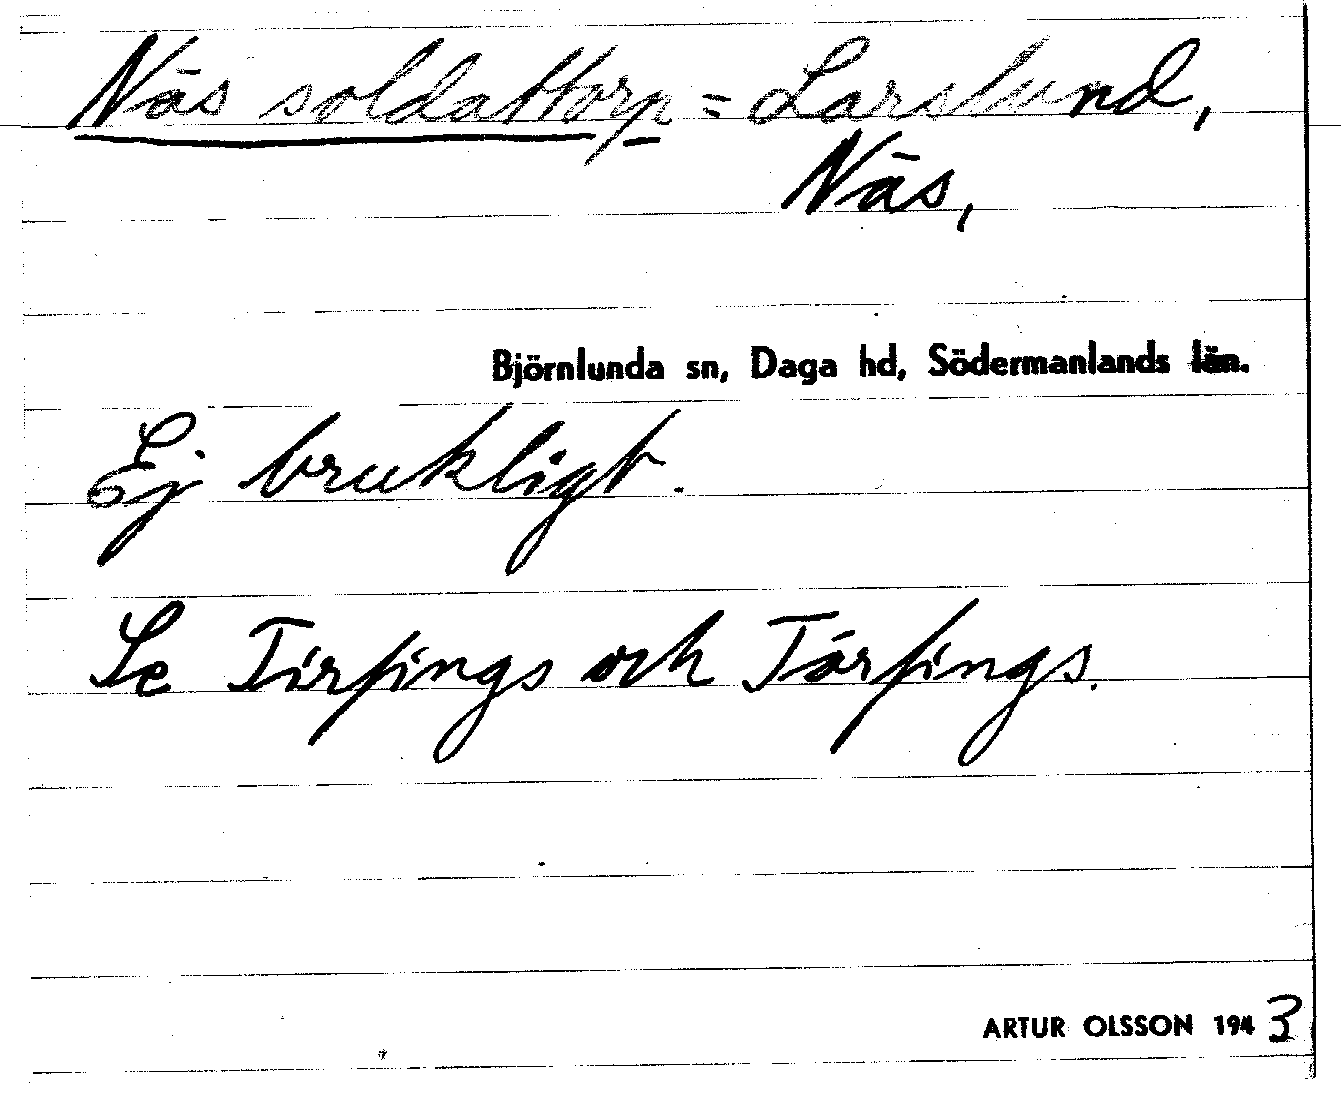 Näs soldattorp = Larslund,
Näs,
Björnlunda sn, Daga hd, Södermanlands län.
Ej brukligt.
Se Tirfings och Törfings.
ARTUR OLSSON 1943